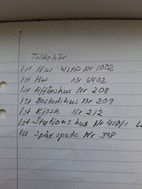 Tillbehör
1st Hus Nr 1002
1st Hus Nr 6402
1st Affärshus Nr 208
1st Bostadshus Nr 209
1st Kiosk Nr 212
1st Stations hus Nr 4101
1ss Spårspade Nr 398